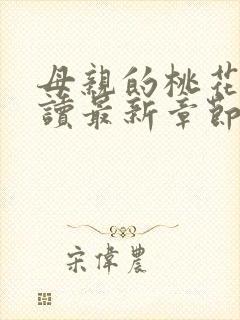 母親的桃花
讀最新章節
宋偉農